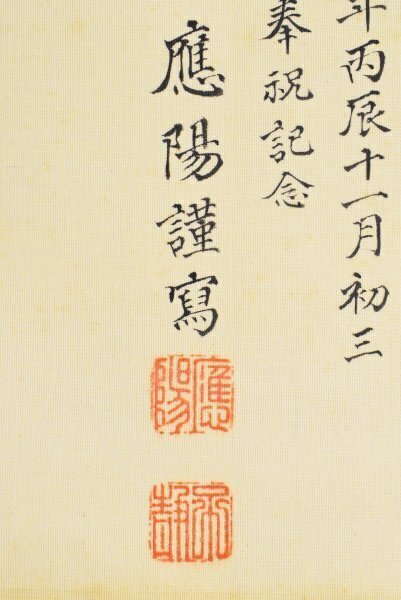 年丙辰十一月初三
奉祝記念
應陽謹寫
應陽